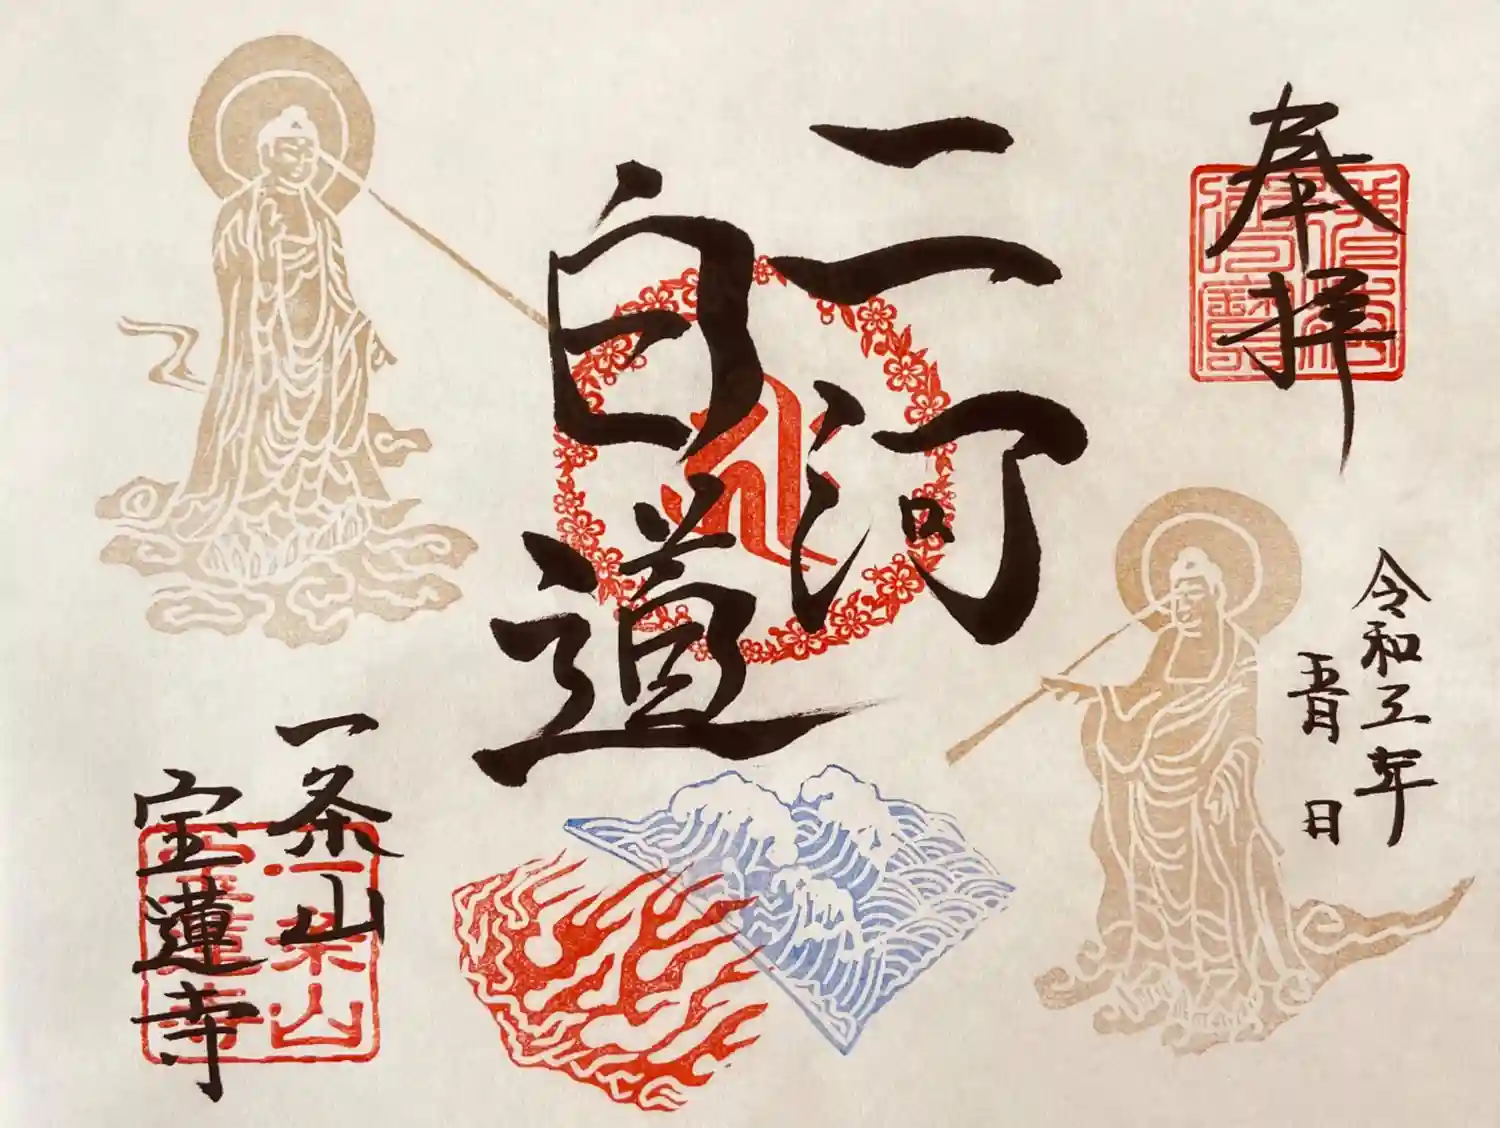 奉拝
令和五年
五月 日
二河
白道
一条山
宝蓮寺